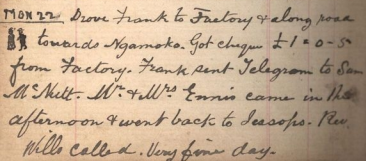 MON 22 Drove Frank to Factory & along road
towards Ngamoko. Got cheque £1=0-5
from Factory. Frank sent Telegram to Sam
McNett. Mr & Mrs Ennis came in the
afternoon & went back to Jessops. Rev.
Wills called. Very fine day.